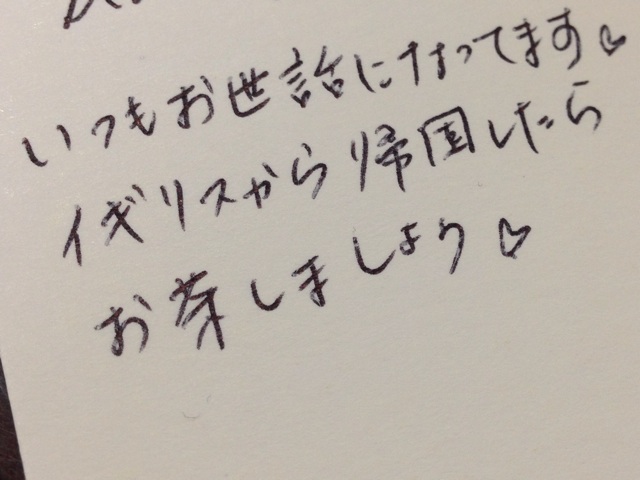 いつもお世話になってます♡
イギリスから帰国したら
お茶しましょう♡